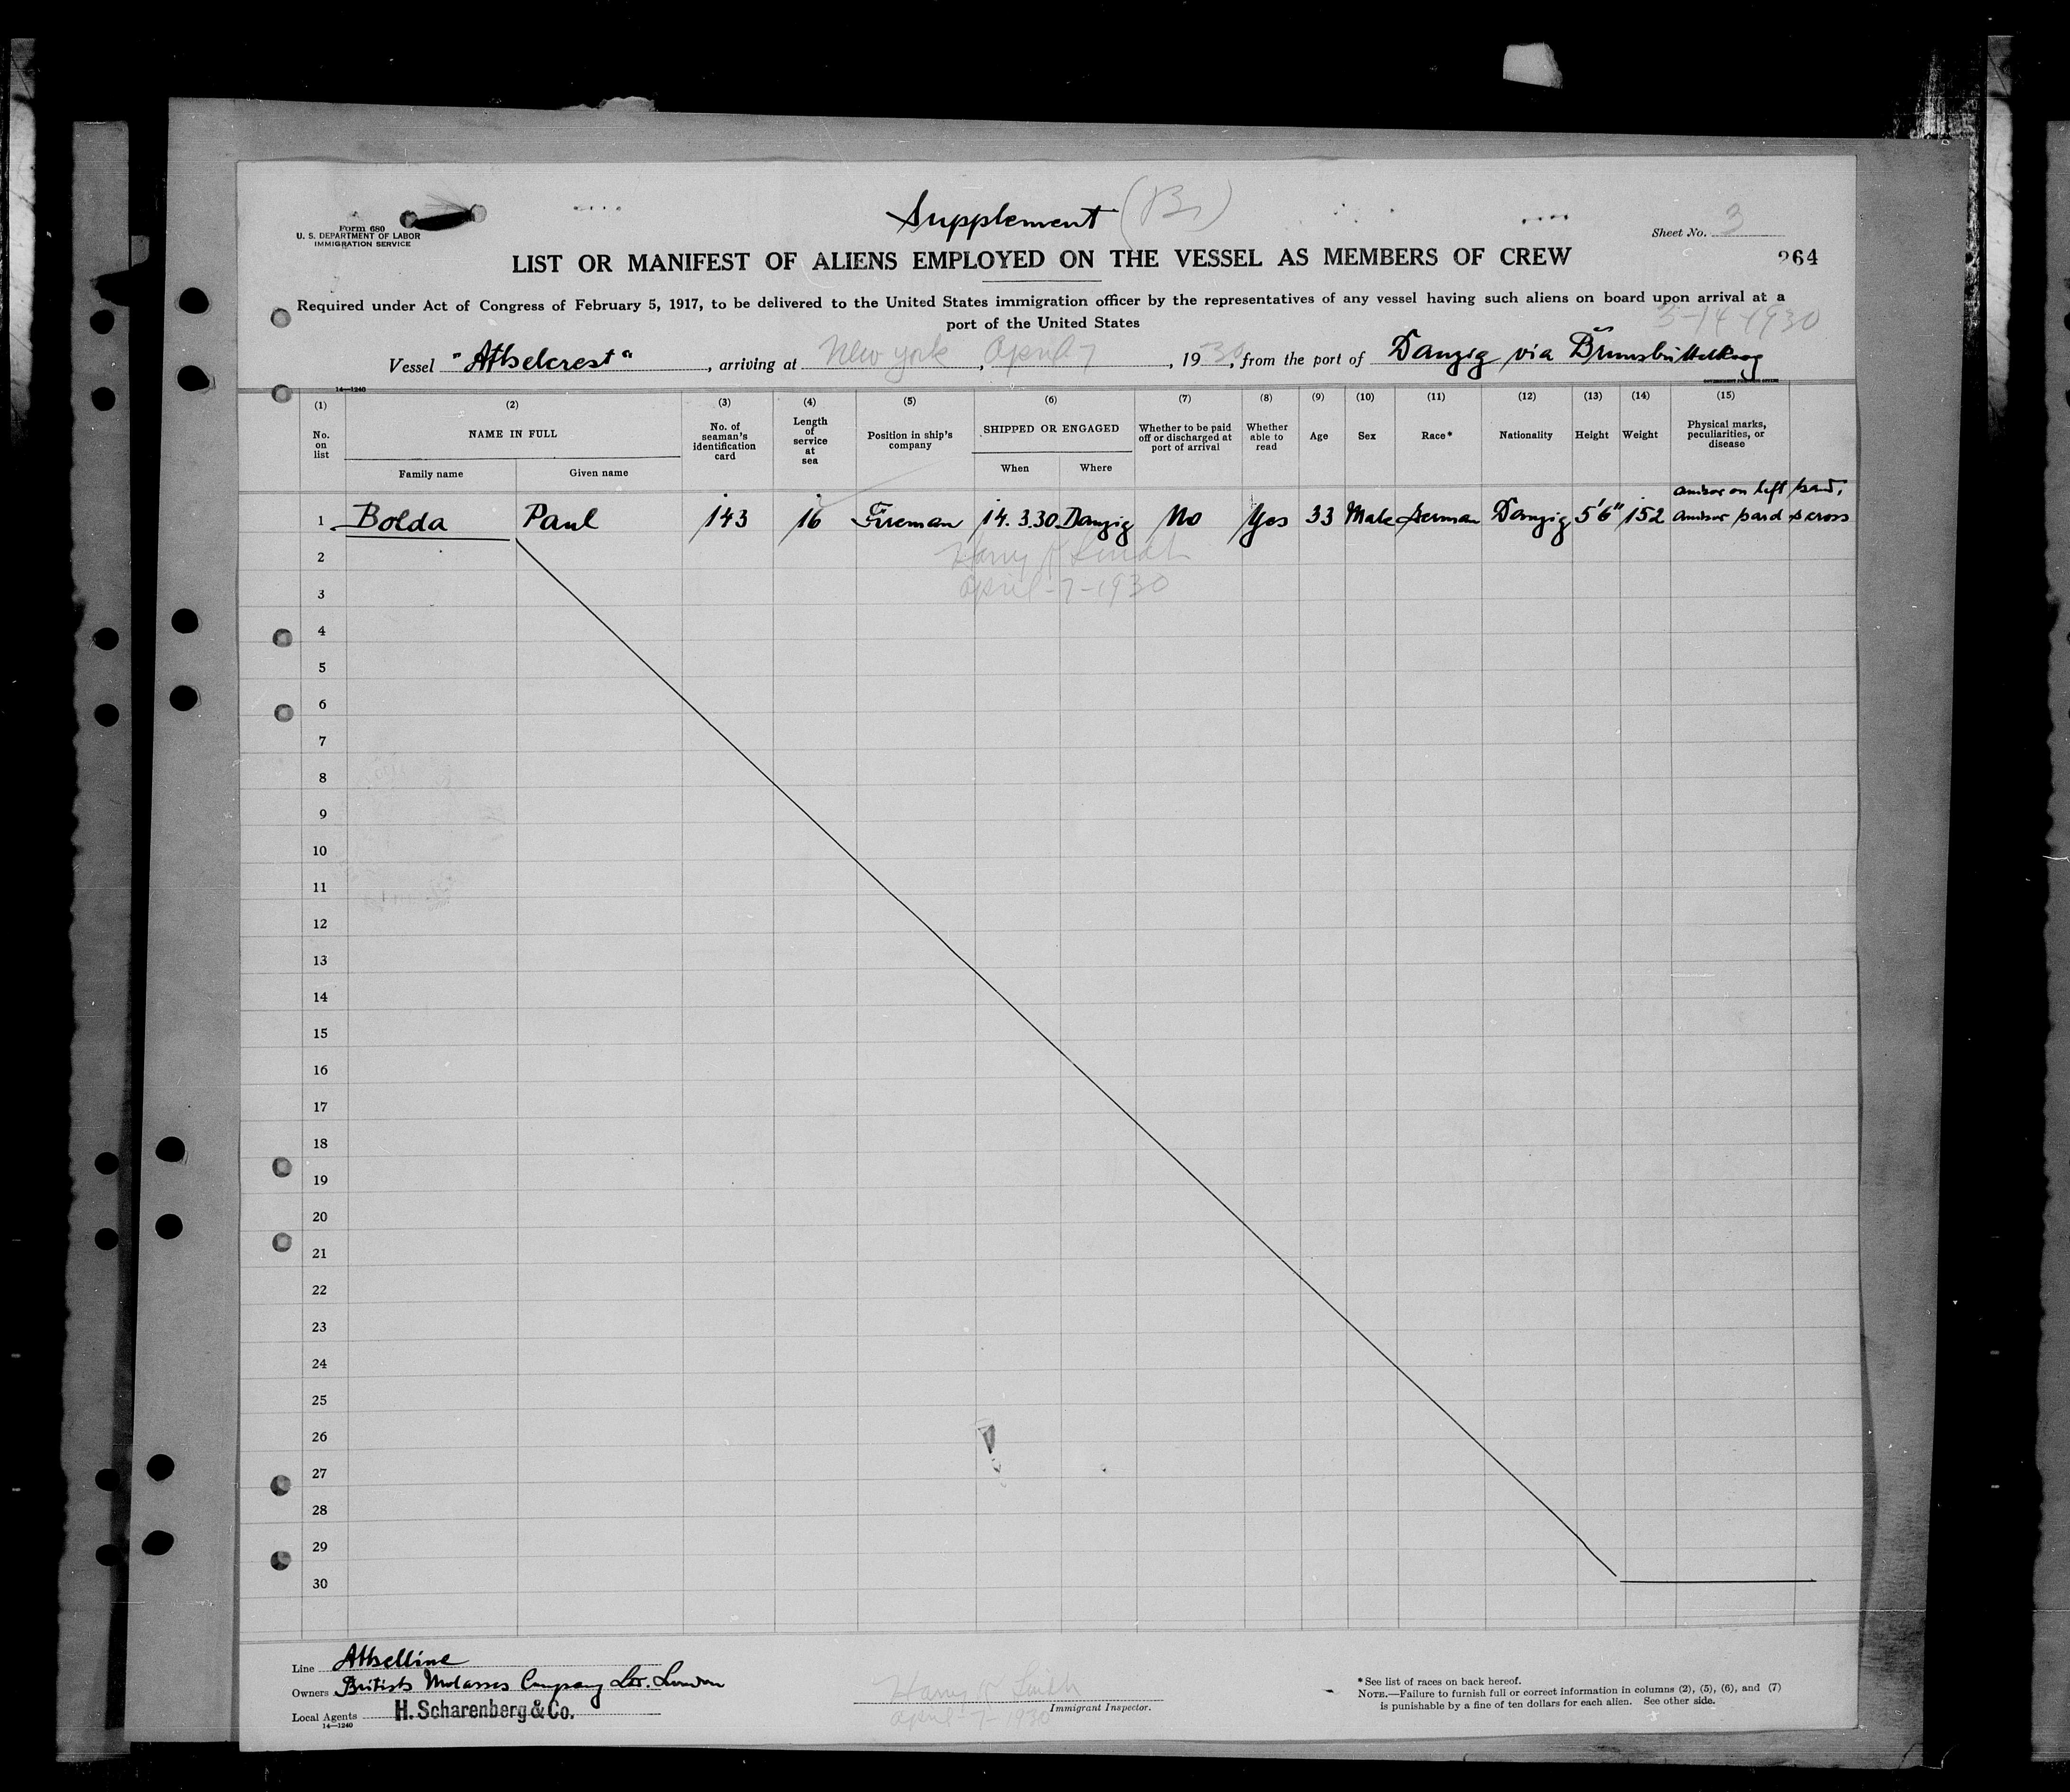 Supplement (B)
Form 680
U. S. DEPARTMENT OF LABOR
IMMIGRATION SERVICE
Sheet No. 3
LIST OR MANIFEST OF ALIENS EMPLOYED ON THE VESSEL AS MEMBERS OF CREW
264
Required under Act of Congress of February 5, 1917, to be delivered to the United States immigration officer by the representatives of any vessel having such aliens on board upon arrival at a
port of the United States
3-14-1930
Vessel "Athelcrest", arriving at New York, April 7, 1930, from the port of Danzig via Brunsbüttelkoog
14—1240
(1) (2) (3) (4) (5) (6) (7) (8) (9) (10) (11) (12) (13) (14) (15)
No. on list
NAME IN FULL
Family name
Given name
No. of seaman's identification card
Length of service at sea
Position in ship's company
SHIPPED OR ENGAGED
When
Where
Whether to be paid off or discharged at port of arrival
Whether able to read
Age
Sex
Race*
Nationality
Height
Weight
Physical marks, peculiarities, or disease
on left
1 Bolda Paul 143 16 Fireman 14.3.30 Danzig No Yes 33 Male German Danzig 5'6" 152
2
Harry Smith
3
April-7-1930
4
5
6
7
8
9
10
11
12
13
14
15
16
17
18
19
20
21
22
23
24
25
26
27
28
29
30
Line Athelline
Owners British Molasses Company Ltd. London
Local Agents H. Scharenberg & Co.
14—1240
Harry Smith
April-7-1930
Immigrant Inspector.
* See list of races on back hereof.
NOTE.—Failure to furnish full or correct information in columns (2), (5), (6), and (7)
is punishable by a fine of ten dollars for each alien. See other side.